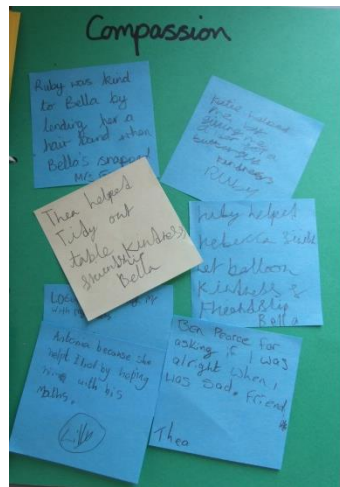 Compassion
Ruby was kind
to Bella by
lending her a
hair band when
Bella's snapped
Mrs
Katie helped
me by
giving me
kindness
RUBY
Thea helped
Tidy out
table Kindness
friendship
Bella
ruby helped
rebecca
get balloon
Kindness &
Freendship
Bella
because she
helpt by helping
him with his
Maths.
Ben Pearce for
asking if I was
alright when I
was sad. Friend
Thea